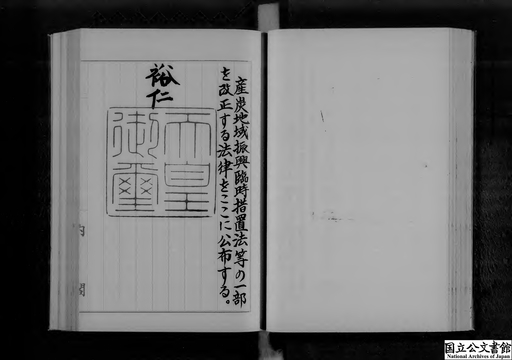 産炭地域振興臨時措置法等の一部
を改正する法律をここに公布する。
裕仁
天皇
御璽
国立公文書館
National Archives of Japan